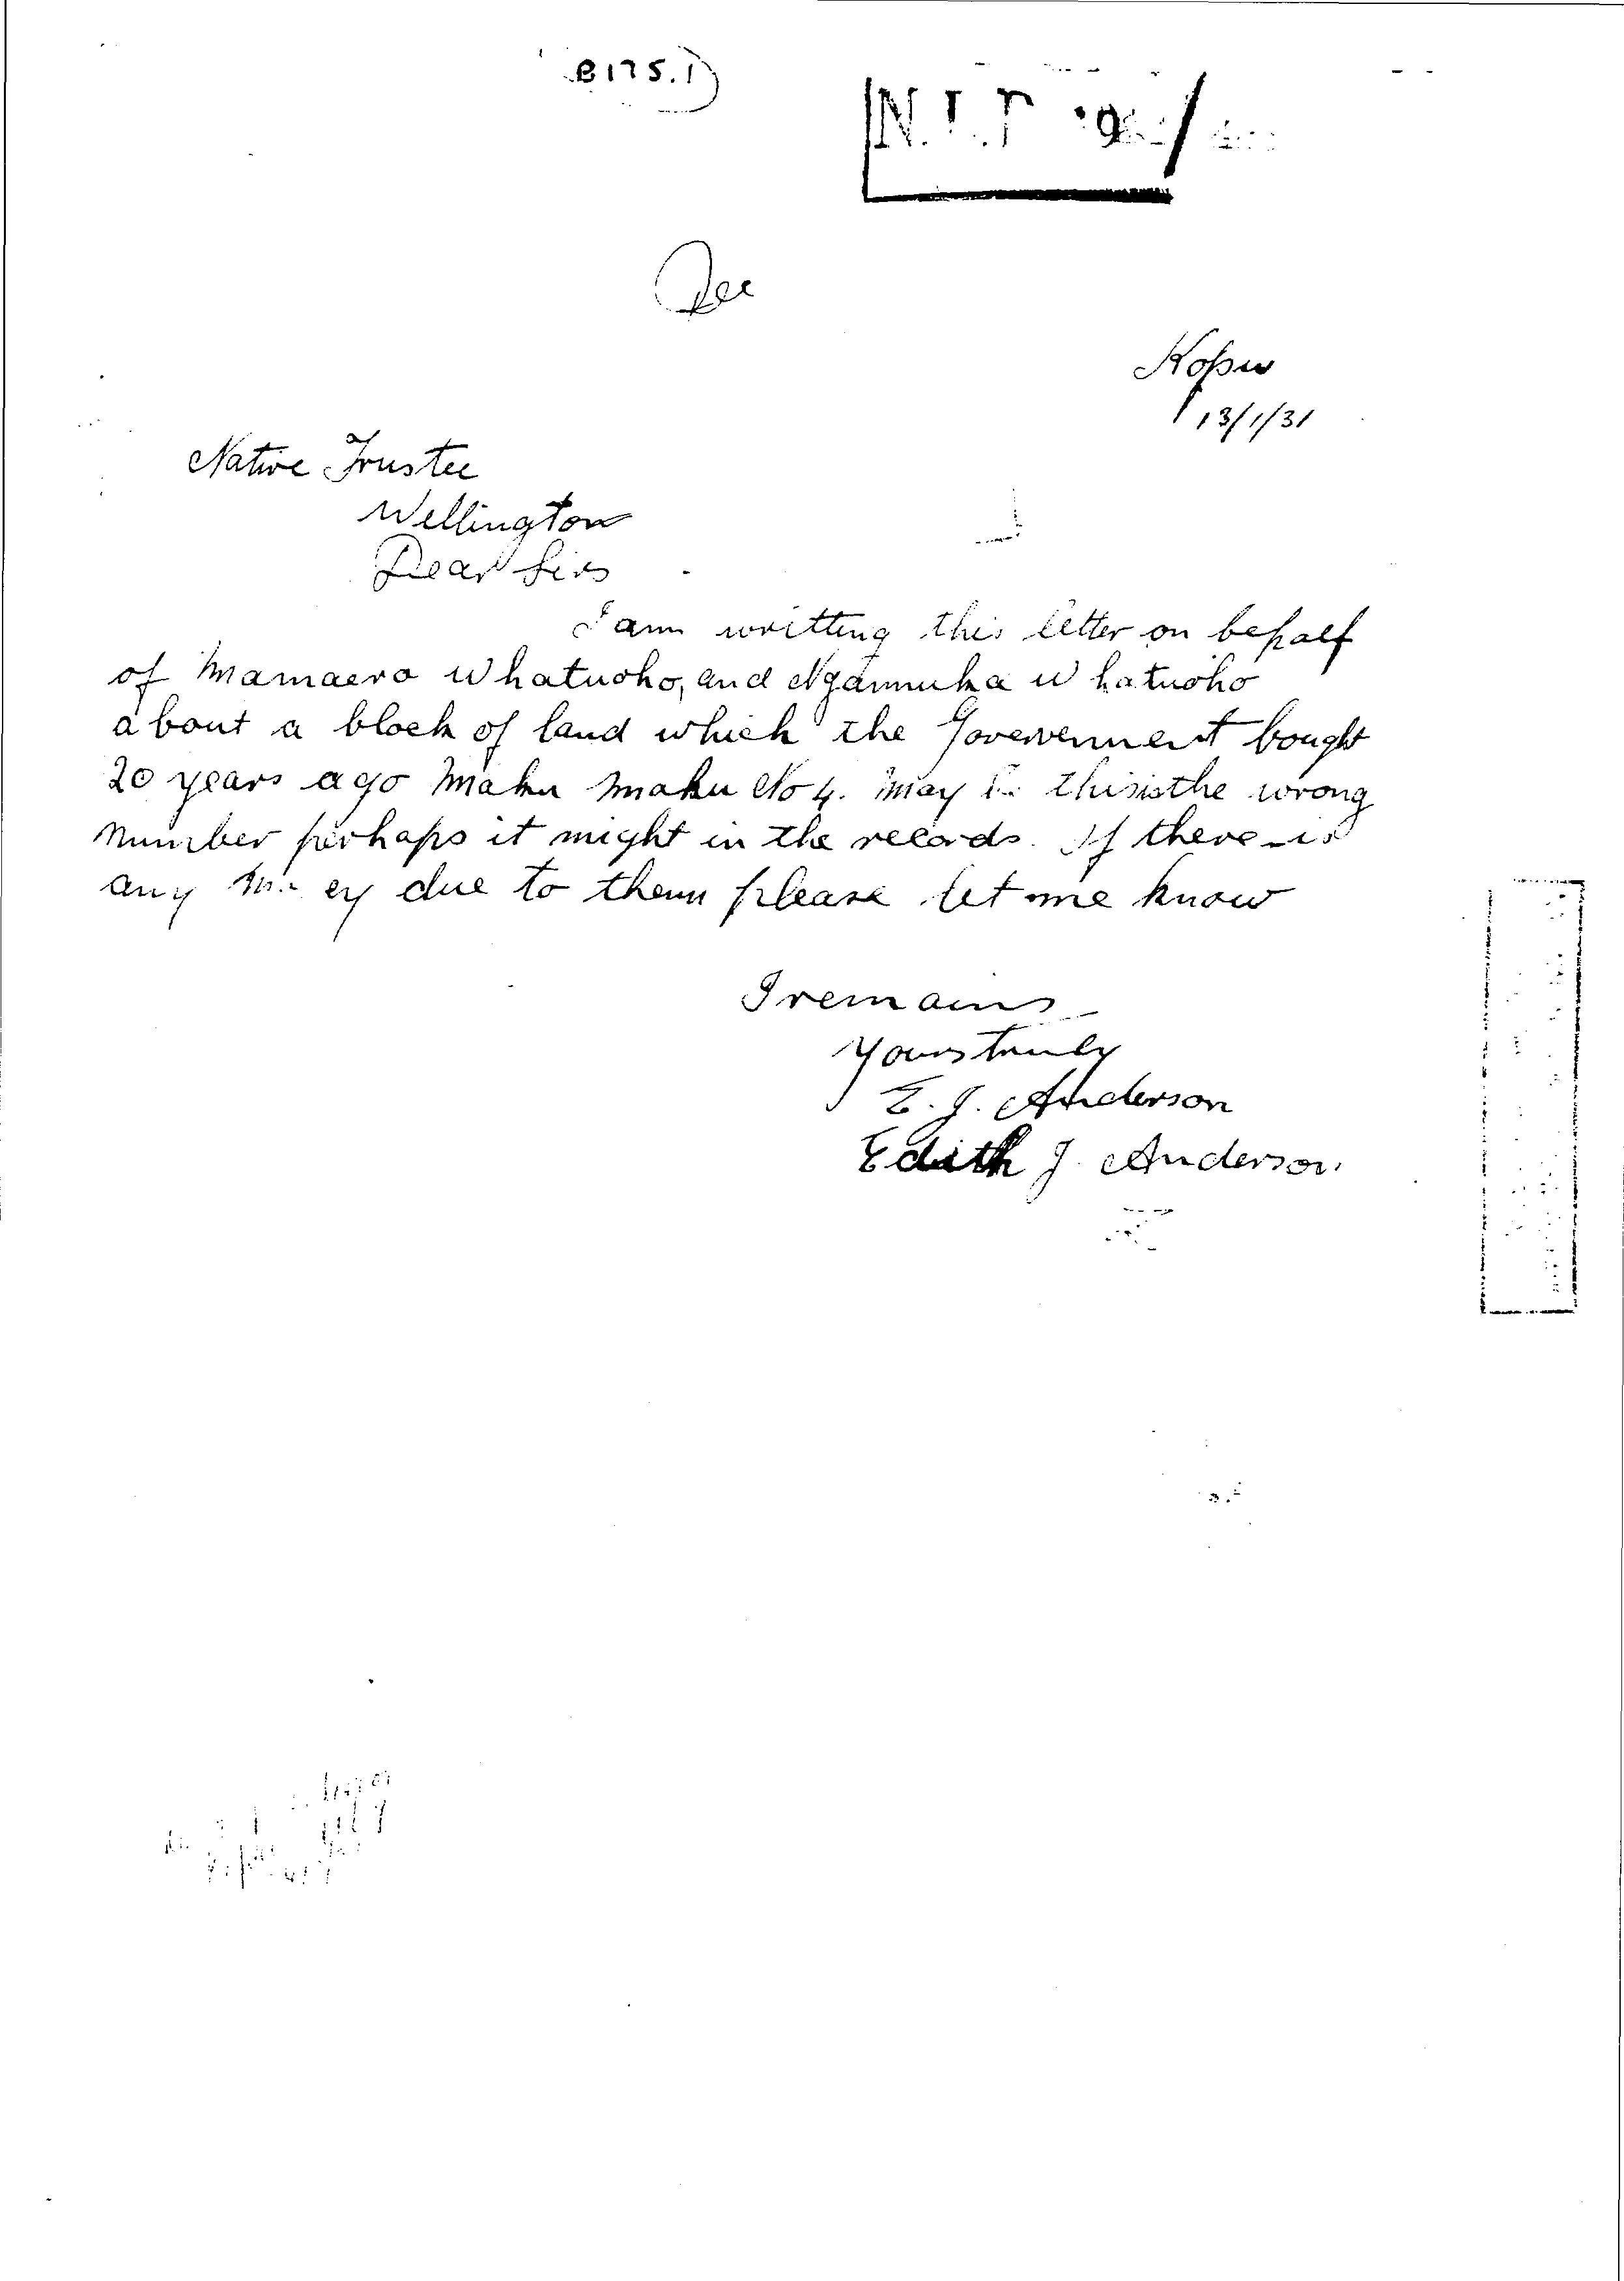 B175.1)
N.T.
Kopu
13/1/31
Native Trustee
Wellington
Dear Sirs
I am writting this letter on behalf
of Mamaero Whatuoho, and Ngamuka Whatuoho
about a block of land which the Goverenment bought
20 years ago Maku Maku No 4. may be this is the wrong
Number perhaps it might in the records. If there is
any money due to them please let me know
I remains
Yours truly
E. J. Anderson
Edith J. Anderson